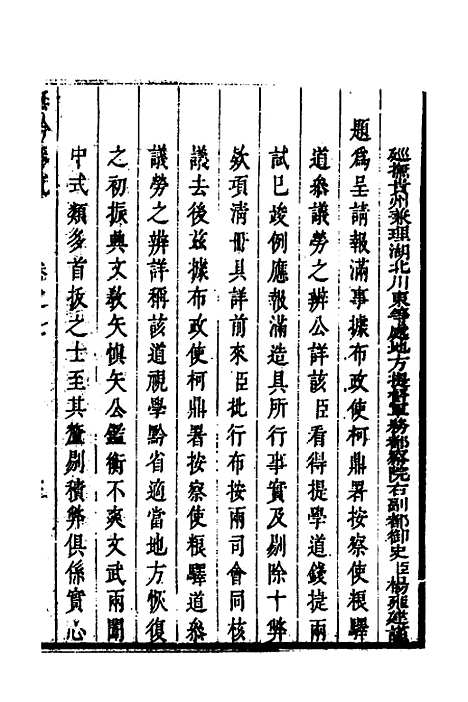 巡撫貴州兼理湖北川東等處地方提督軍務都察院右副都御史臣楊雍建謹
題爲呈請報滿事據布政使柯鼎署按察使粮驛
道參議勞之辨公詳該臣看得提學道錢捷兩
試已竣例應報滿造具所行事實及剔除十弊
欵項清冊具詳前來臣批行布按兩司會同核
議去後兹據布政使柯鼎署按察使粮驛道參
議勞之辨詳稱該道視學黔省適當地方恢復
之初振興文敎矢愼矢公鑑衡不爽文武兩闈
中式類多首拔之士至其釐剔積弊俱係實心
撫黔奏疏
卷之七